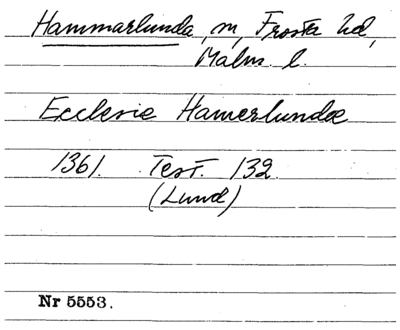 Hammarlunda, sn, Frosta hd,
Malm. l.
Ecclesie Hamerlundæ
1361. Test. 132
(Lund)
Nr 5553.